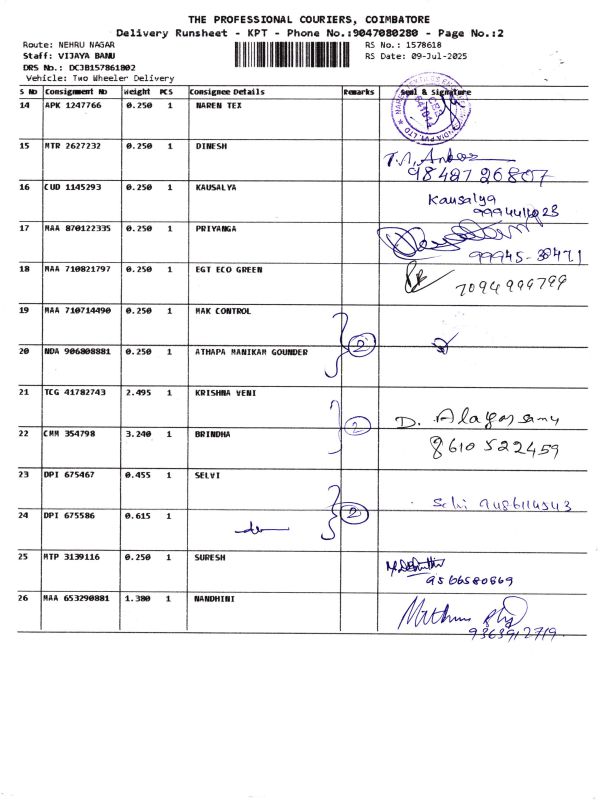 THE PROFESSIONAL COURIERS, COIMBATORE
Delivery Runsheet - KPT - Phone No.:9047080280 - Page No.:2
Route: NEHRU NAGAR RS No.: 1578618
Staff: VIJAYA BANU RS Date: 09-Jul-2025
DRS No.: DCJB157861802
Vehicle: Two Wheeler Delivery
S No Consignment No Weight PCS Consignee Details Remarks Seal & Signature
14 APK 1247766 0.250 1 NAREN TEX
15 MTR 2627232 0.250 1 DINESH
16 CUD 1145293 0.250 1 KAUSALYA Kausalya
17 MAA 870122335 0.250 1 PRIYANGA
99945-30471
18 MAA 710821797 0.250 1 EGT ECO GREEN
7094999799
19 MAA 710714490 0.250 1 MAK CONTROL
2
20 NDA 906808881 0.250 1 ATHAPA MANIKAM GOUNDER
21 TCG 41782743 2.495 1 KRISHNA VENI
2 D.
22 CMM 354798 3.240 1 BRINDHA 8610522459
23 DPI 675467 0.455 1 SELVI
24 DPI 675586 0.615 1 2
25 MTP 3139116 0.250 1 SURESH
9566580869
26 MAA 653290881 1.380 1 NANDHINI
9363912719